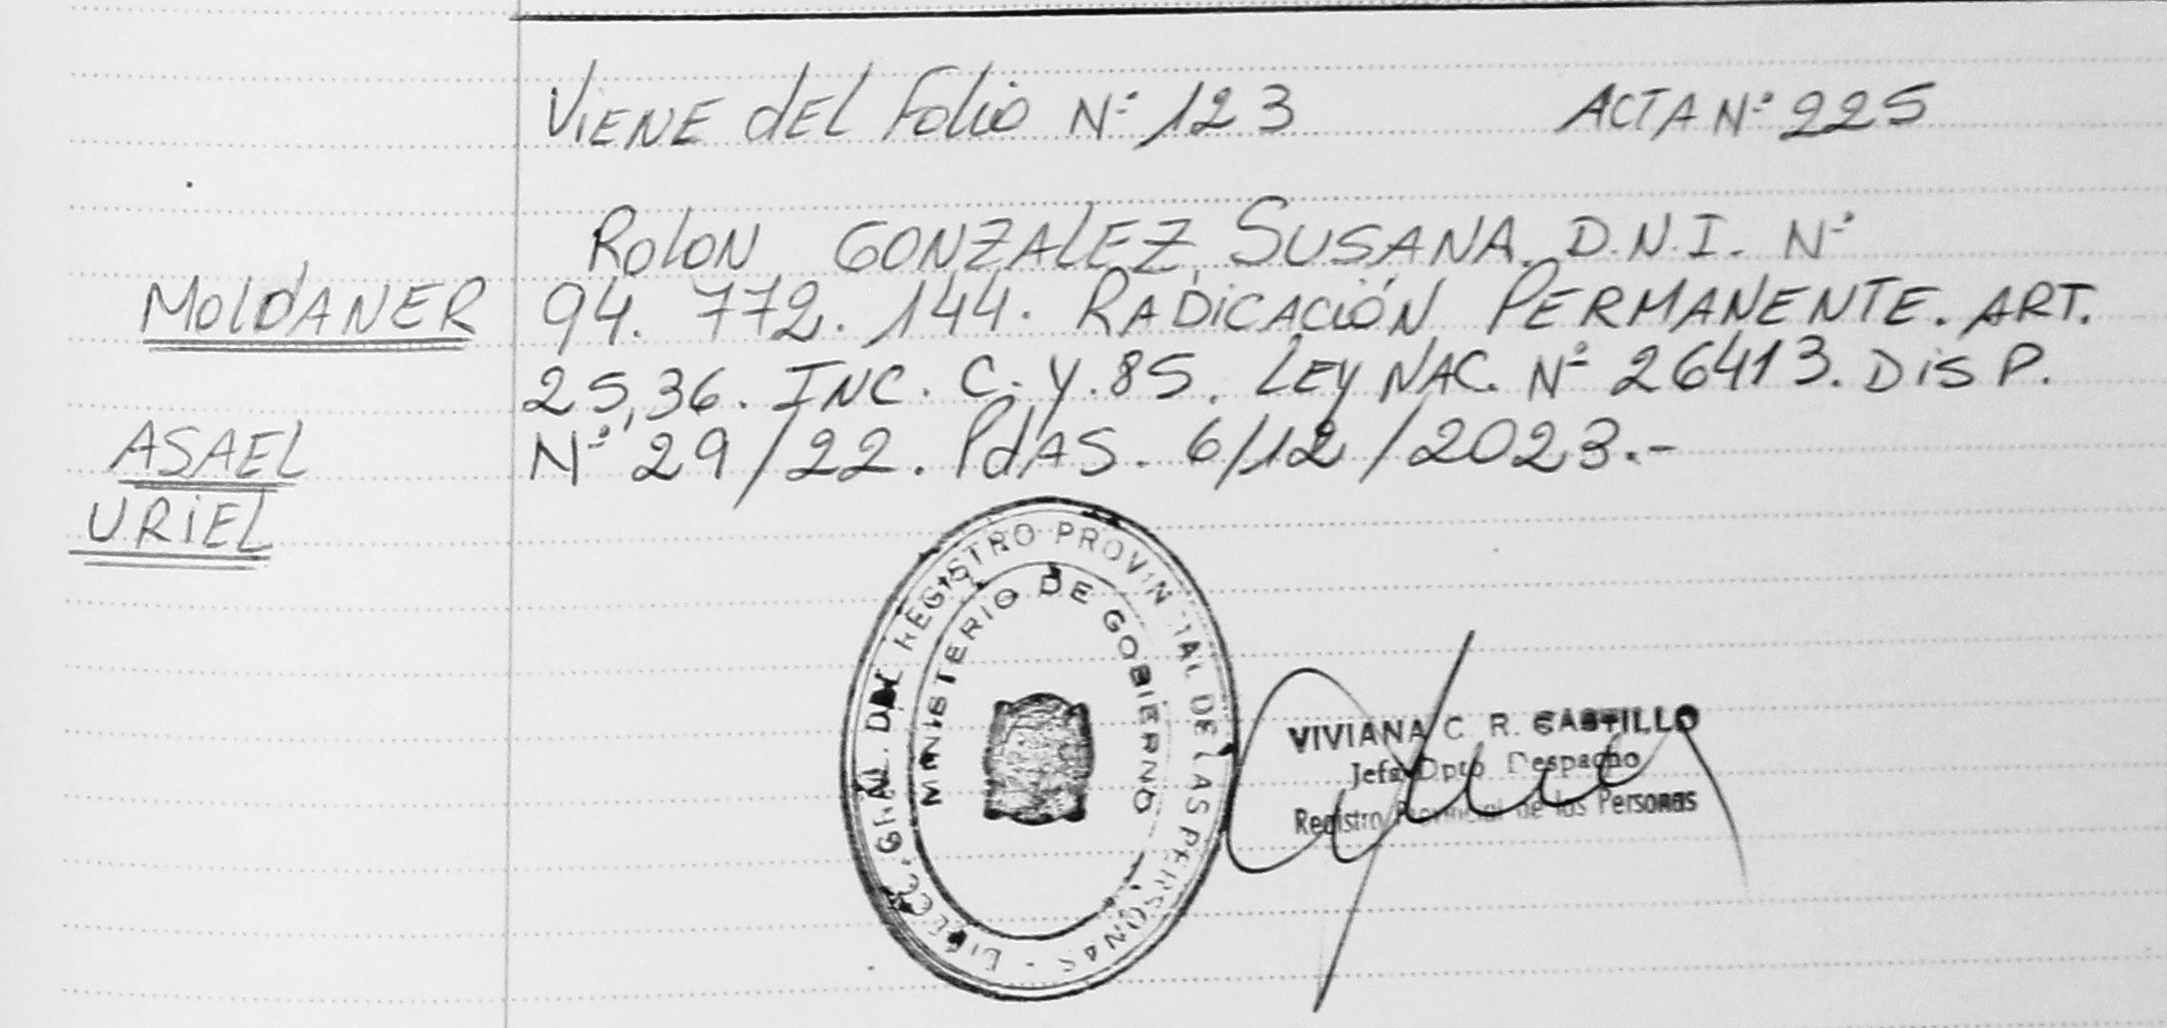 Viene del Folio Nº 123 ACTA Nº 225
Rolon GONZALEZ, SUSANA. D.N.I. Nº
MolDANER
94. 772. 144. RADICACIÓN PERMANENTE. ART.
25,36. INC. C. y. 85. LEy NAC. Nº 26413. DISP.
ASAEL
Nº 29/22. PdAS. 6/12/2023.-
URIEL
DIREC. GRAL. DEL REGISTRO PROVINCIAL DE LAS PERSONAS -
MINISTERIO DE GOBIERNO
VIVIANA C. R. CASTILLO
Jefa Dpto Despacho
Registro Provincial de las Personas